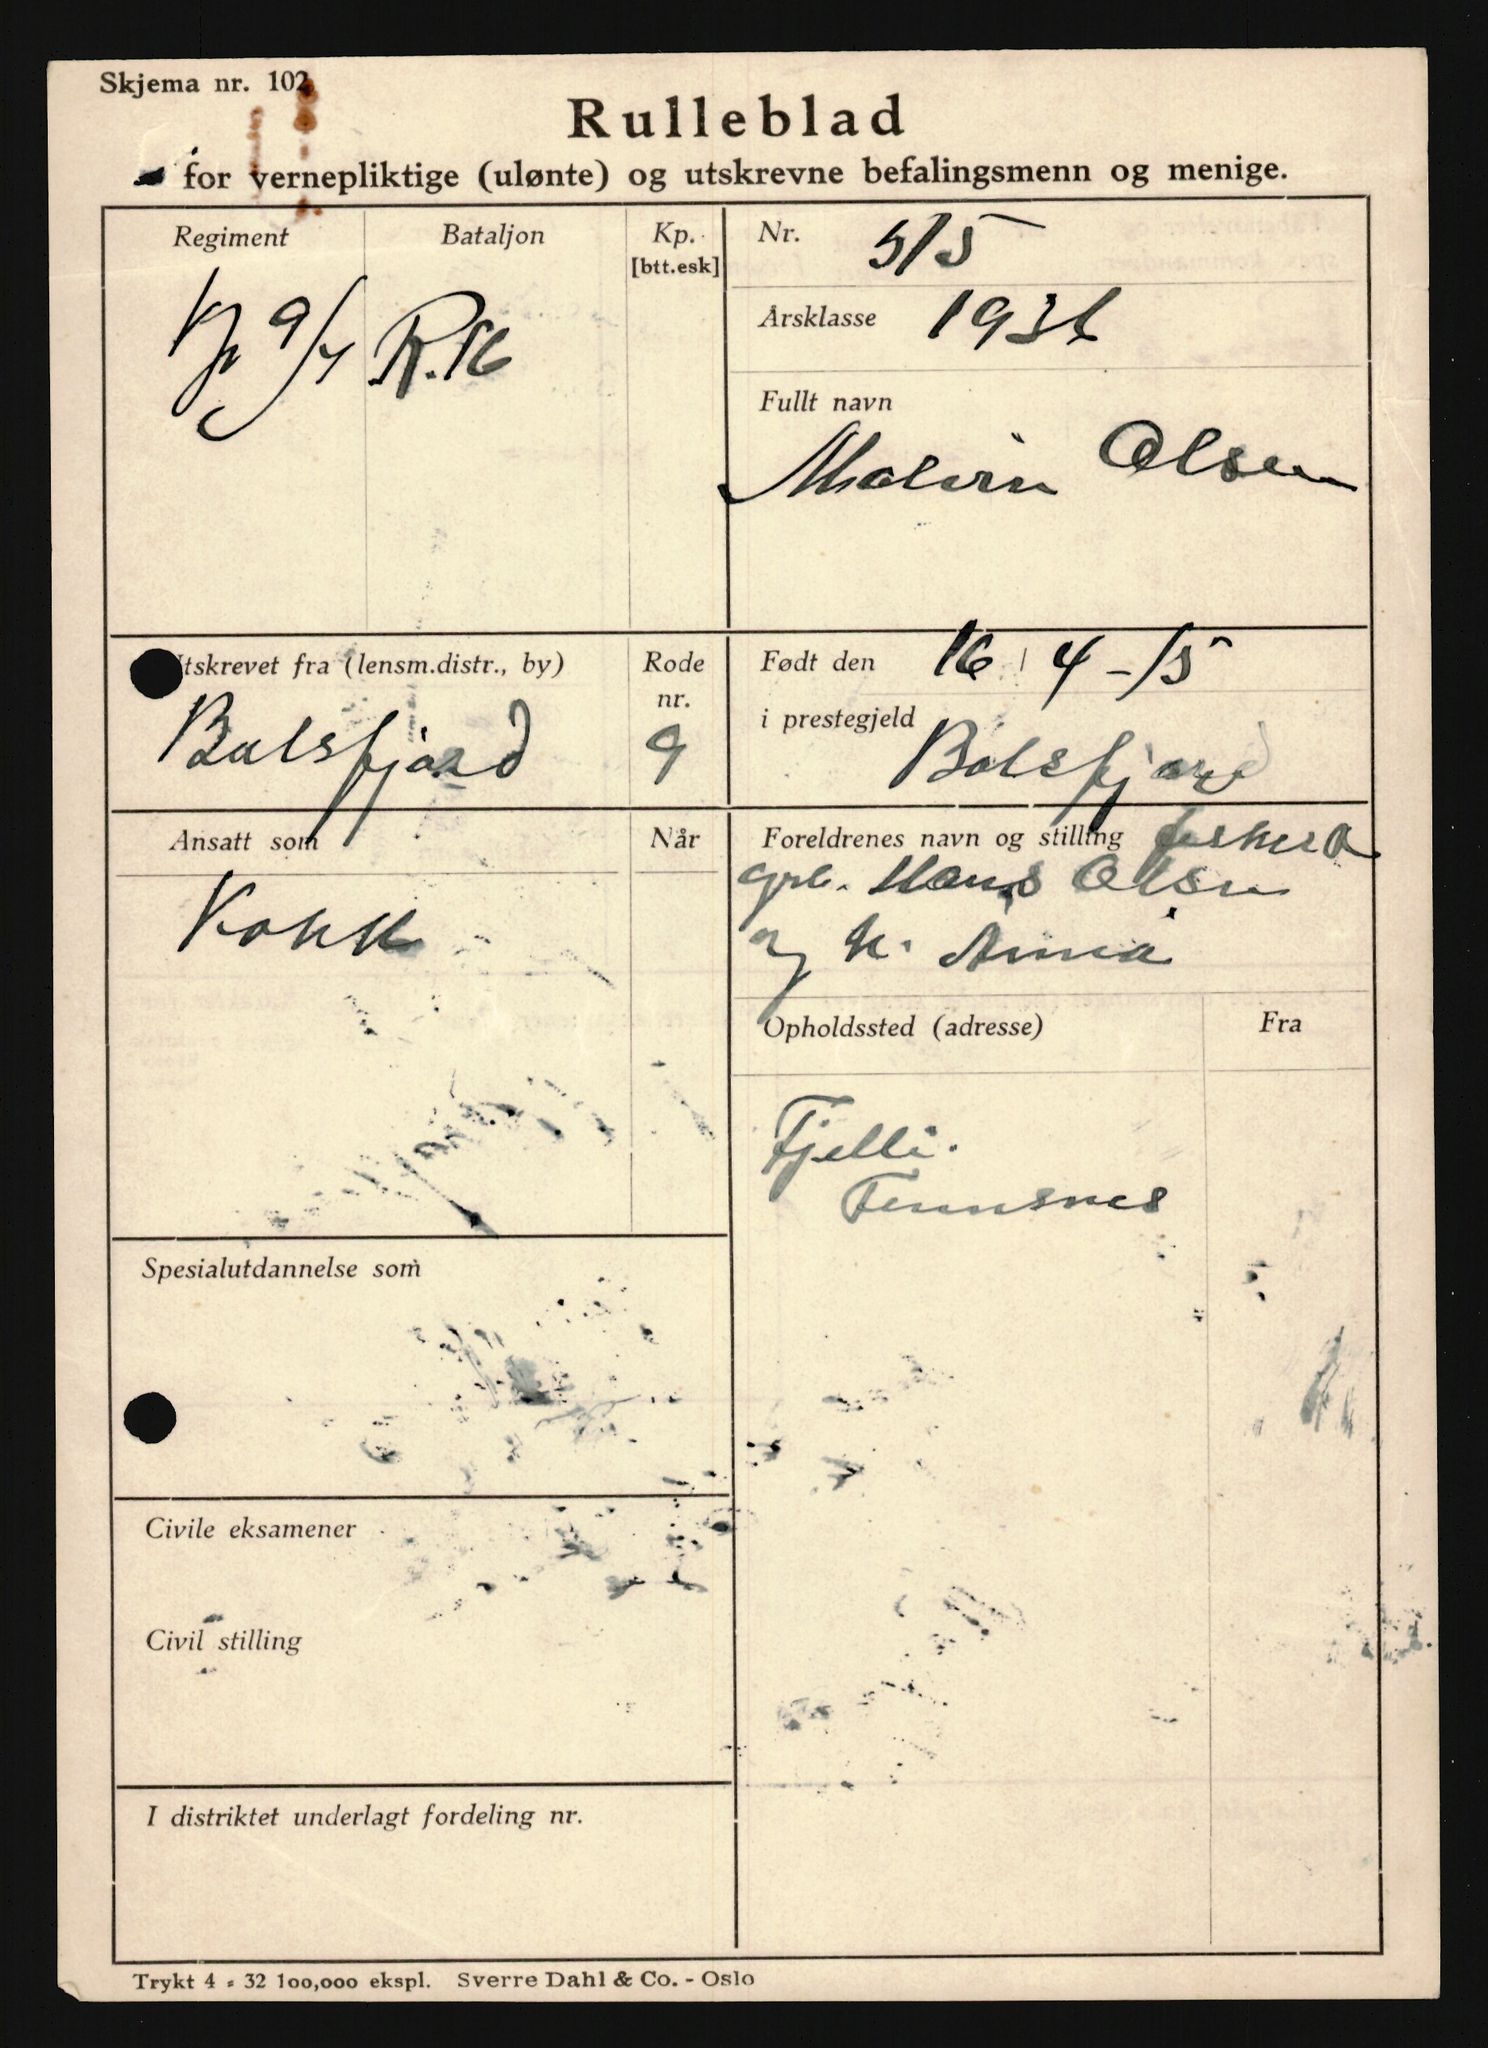 Skjema nr. 102
Rulleblad
for vernepliktige (ulønte) og utskrevne befalingsmenn og menige.
Regiment
Bataljon
Kp.
[btt.esk]
Kp 9/4
R.16
Nr. 515
Årsklasse 1936
Fullt navn
Malvin Olsen
Utskrevet fra (lensm.distr., by)
Balsfjord
Rode
nr.
9
Født den 16 4-15
i prestegjeld
Balsfjord
Ansatt som
Når
Kokk
Foreldrenes navn og stilling fisker
Hans Olsen
og h. Anna
Opholdssted (adresse)
Fra
Fjelli.
Tennsnes
Spesialutdannelse som
Civile eksamener
Civil stilling
I distriktet underlagt fordeling nr.
Trykt 4 - 32 100,000 ekspl. Sverre Dahl & Co. - Oslo